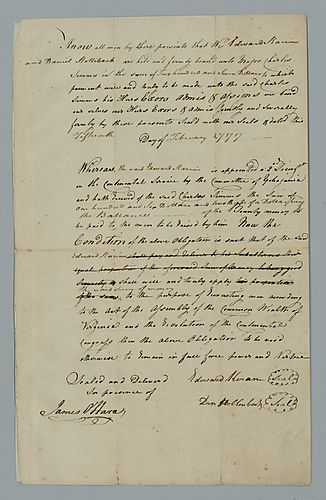 Know all men by these presents that We Edward Kearin
and Daniel Hollibeck are held and firmly bound unto Major Charles
Simms in the sum of Two hundred and Seven Dollars which
payment well and truly to be made unto the said Charles
Simms his Heirs Exors Admrs & Assigns we bind
our selves our Heirs & Admrs jointly and severally
firmly by these presents Seald with our Seals & dated this
Fifteenth Day of February 1777
Whereas the said Edward Kearin is appointed a
in the Continental Service by the Committee of Yohogania
and hath received of the said Charles Simms the Sum of
one hundred and Dollars and two thirds of a Dollar being
the Ballance of the Bounty money to
be paid to the men to be raised by him Now the
Condition of the above Obligation is such that if the said
Edward Kearin
equal proportion of the aforesaid Sum of Money
shall well and truly apply
the said Sum of money
to the purpose of Inlisting men according
to the Act of the Assembly of the Common Wealth of
Virginia and the Resolution of the Continental
Congress then the above Obligation to be void
otherwise to Remain in full force power and Virtue
Sealed and Deliverd
in presence of
Edward Kearin Seal
James O'Hara
Dan Hollenback Seal